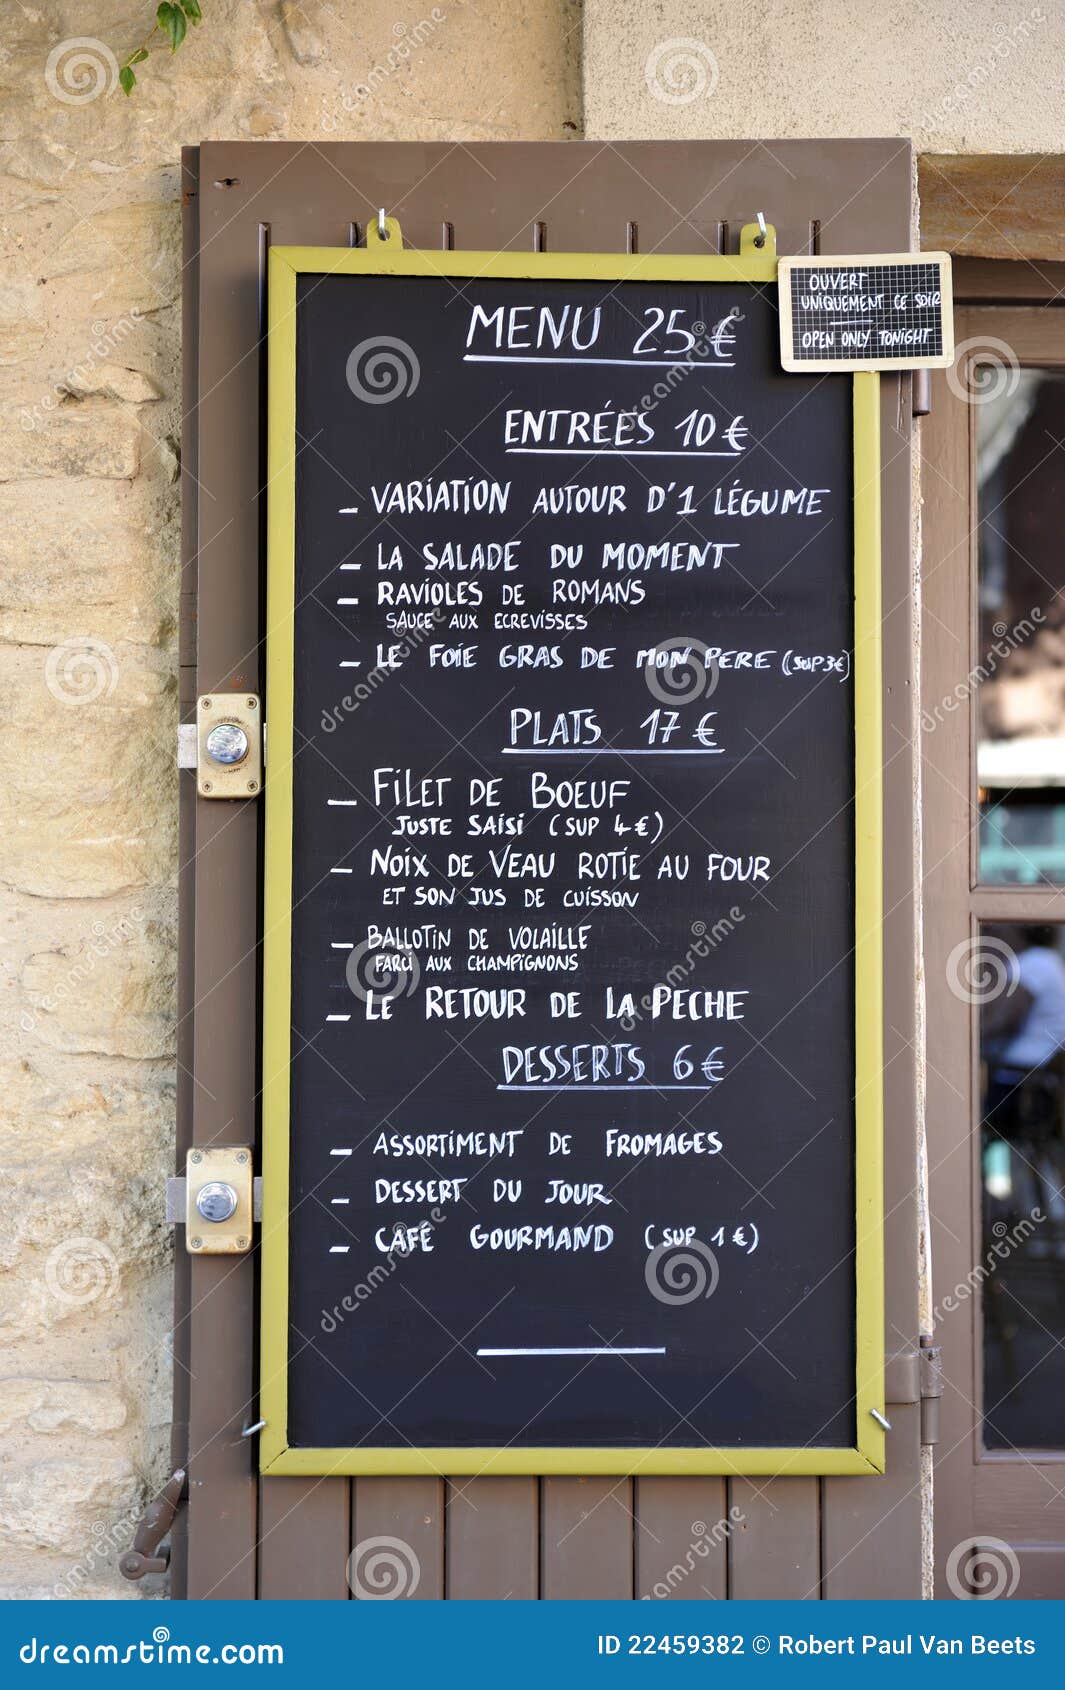 MENU 25 €
OUVERT
UNIQUEMENT CE SOIR
OPEN ONLY TONIGHT
ENTRÉES 10 €
– VARIATION AUTOUR D'1 LÉGUME
– LA SALADE DU MOMENT
– RAVIOLES DE ROMANS
SAUCE AUX ECREVISSES
– LE FOIE GRAS DE MON PERE (SUP 3€)
PLATS 17 €
– FILET DE BOEUF
JUSTE SAISI (SUP 4€)
– NOIX DE VEAU ROTIE AU FOUR
ET SON JUS DE CUISSON
– BALLOTIN DE VOLAILLE
FARCI AUX CHAMPIGNONS
– LE RETOUR DE LA PECHE
DESSERTS 6 €
– ASSORTIMENT DE FROMAGES
– DESSERT DU JOUR
– CAFÉ GOURMAND (SUP 1 €)
dreamstime.com
ID 22459382 © Robert Paul Van Beets